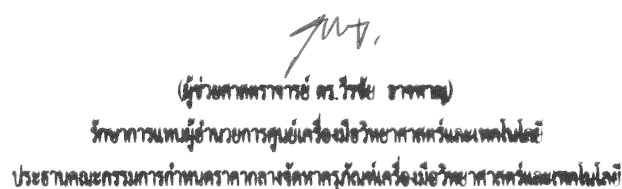 (ผู้ช่วยศาสตราจารย์ ดร.วีรชัย อาจหาญ)
รักษาการแทนผู้อำนวยการศูนย์เครื่องมือวิทยาศาสตร์และเทคโนโลยี
ประธานคณะกรรมการกำหนดราคากลางจัดหาครุภัณฑ์เครื่องมือวิทยาศาสตร์และเทคโนโลยี